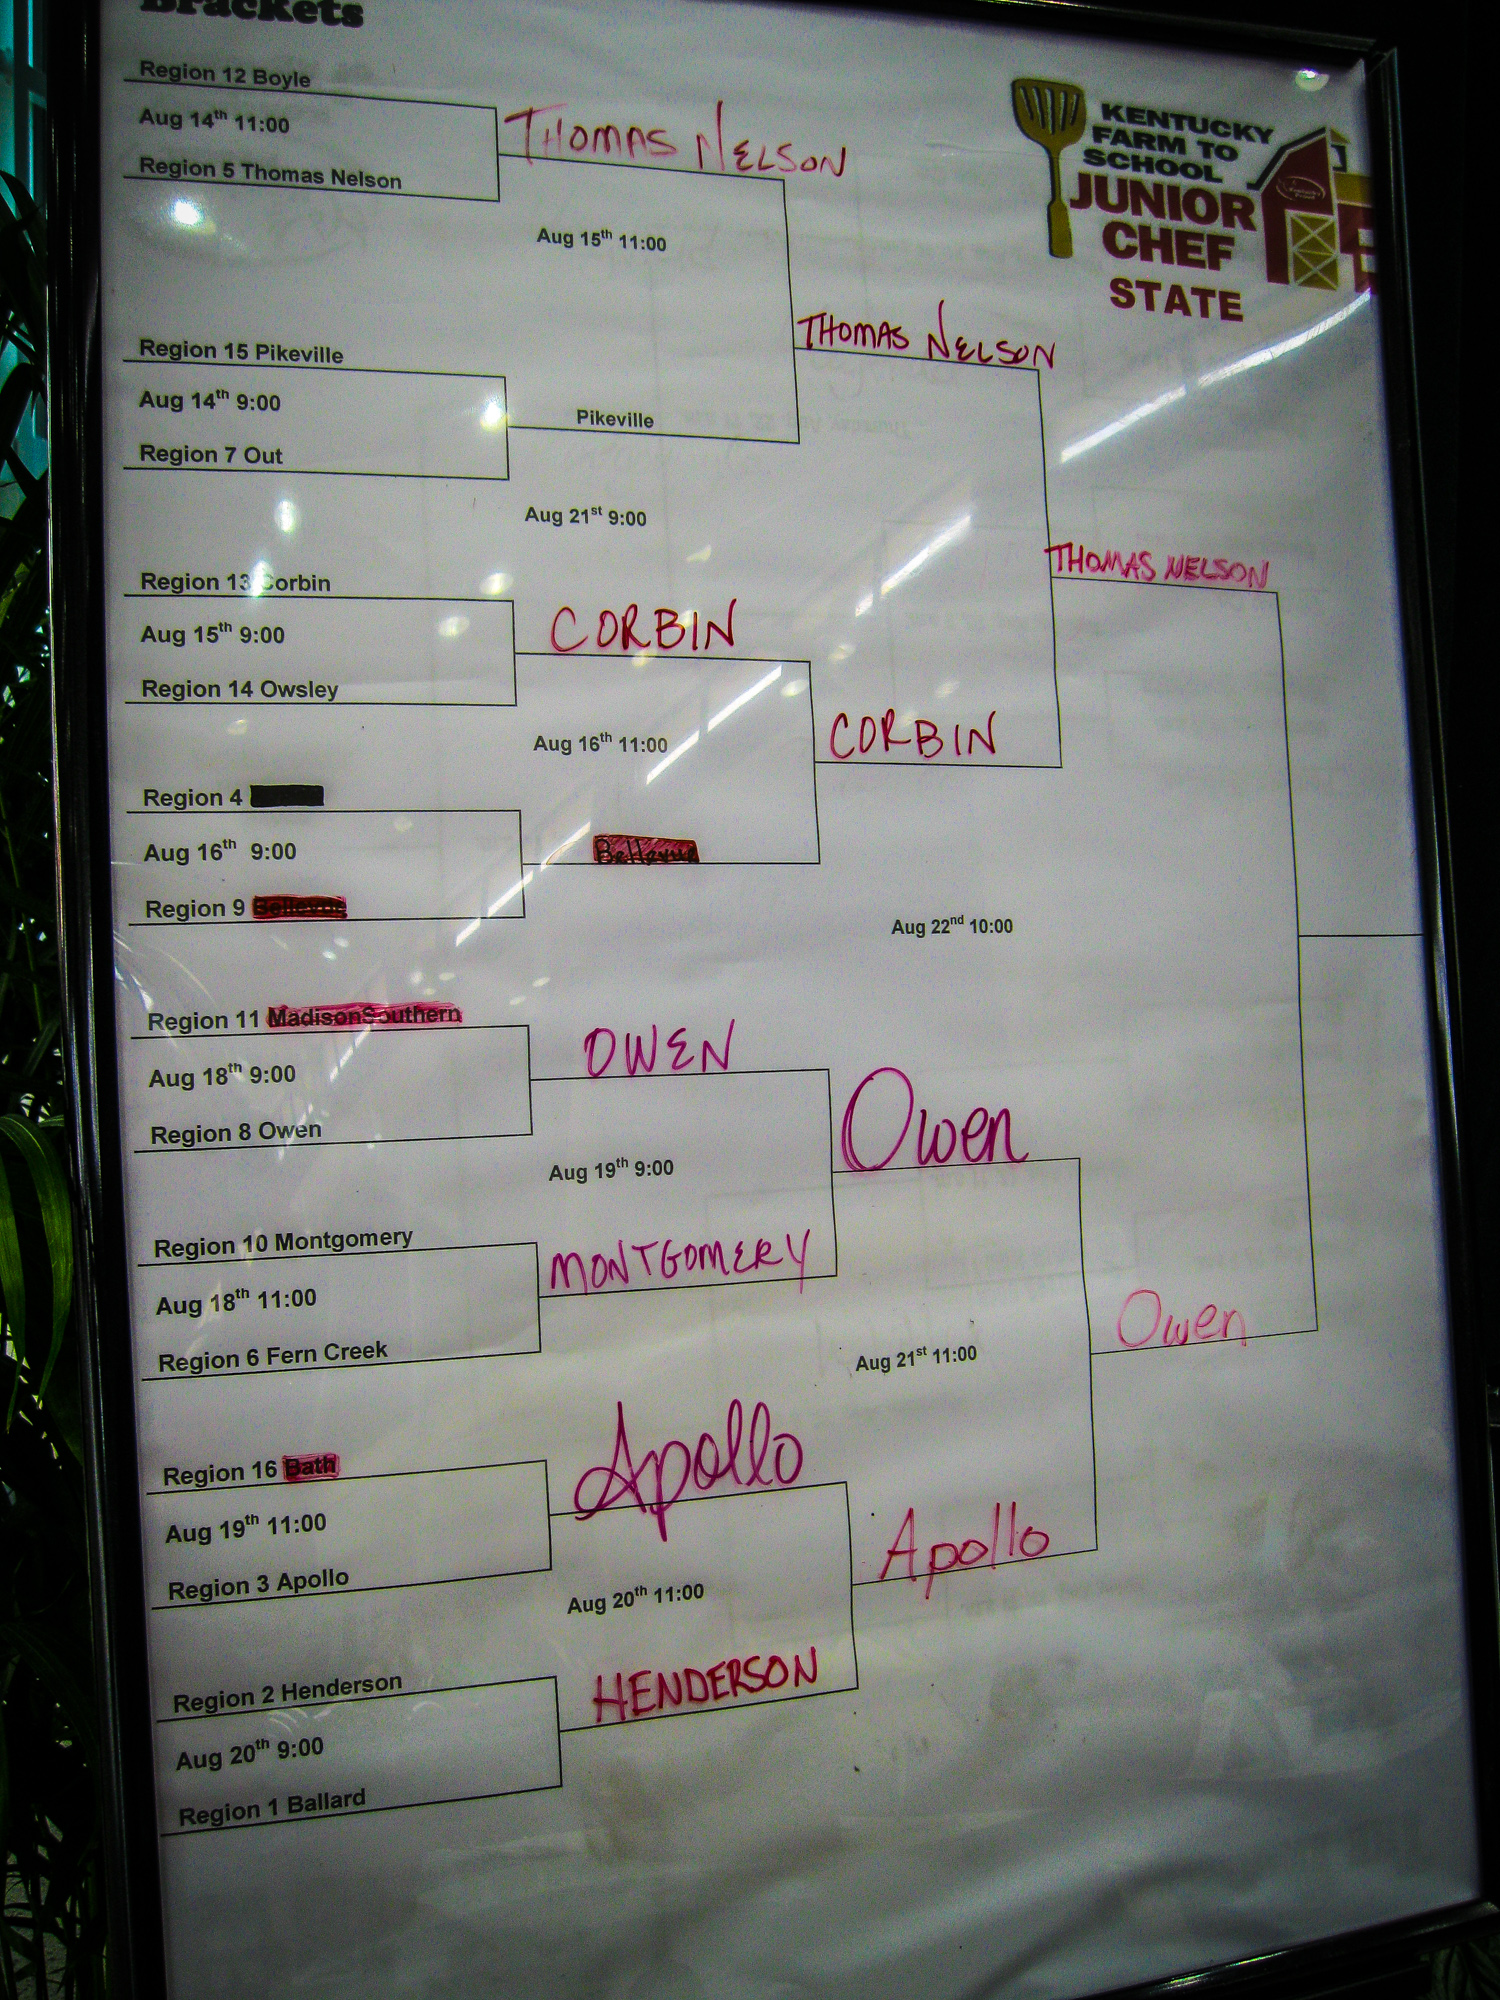 Brackets
KENTUCKY
FARM TO
SCHOOL
JUNIOR
CHEF
STATE
Region 12 Boyle
Aug 14th 11:00
Region 5 Thomas Nelson
THOMAS NELSON
Aug 15th 11:00
Region 15 Pikeville
Aug 14th 9:00
Region 7 Out
Pikeville
THOMAS NELSON
Aug 21st 9:00
Region 13 Corbin
Aug 15th 9:00
Region 14 Owsley
CORBIN
Aug 16th 11:00
Region 4
Aug 16th 9:00
Region 9 Bellevue
Bellevue
CORBIN
THOMAS NELSON
Aug 22nd 10:00
Region 11 MadisonSouthern
Aug 18th 9:00
Region 8 Owen
OWEN
Aug 19th 9:00
Region 10 Montgomery
Aug 18th 11:00
Region 6 Fern Creek
MONTGOMERY
Owen
Aug 21st 11:00
Owen
Region 16 Bath
Aug 19th 11:00
Region 3 Apollo
Apollo
Aug 20th 11:00
Apollo
Region 2 Henderson
Aug 20th 9:00
Region 1 Ballard
HENDERSON